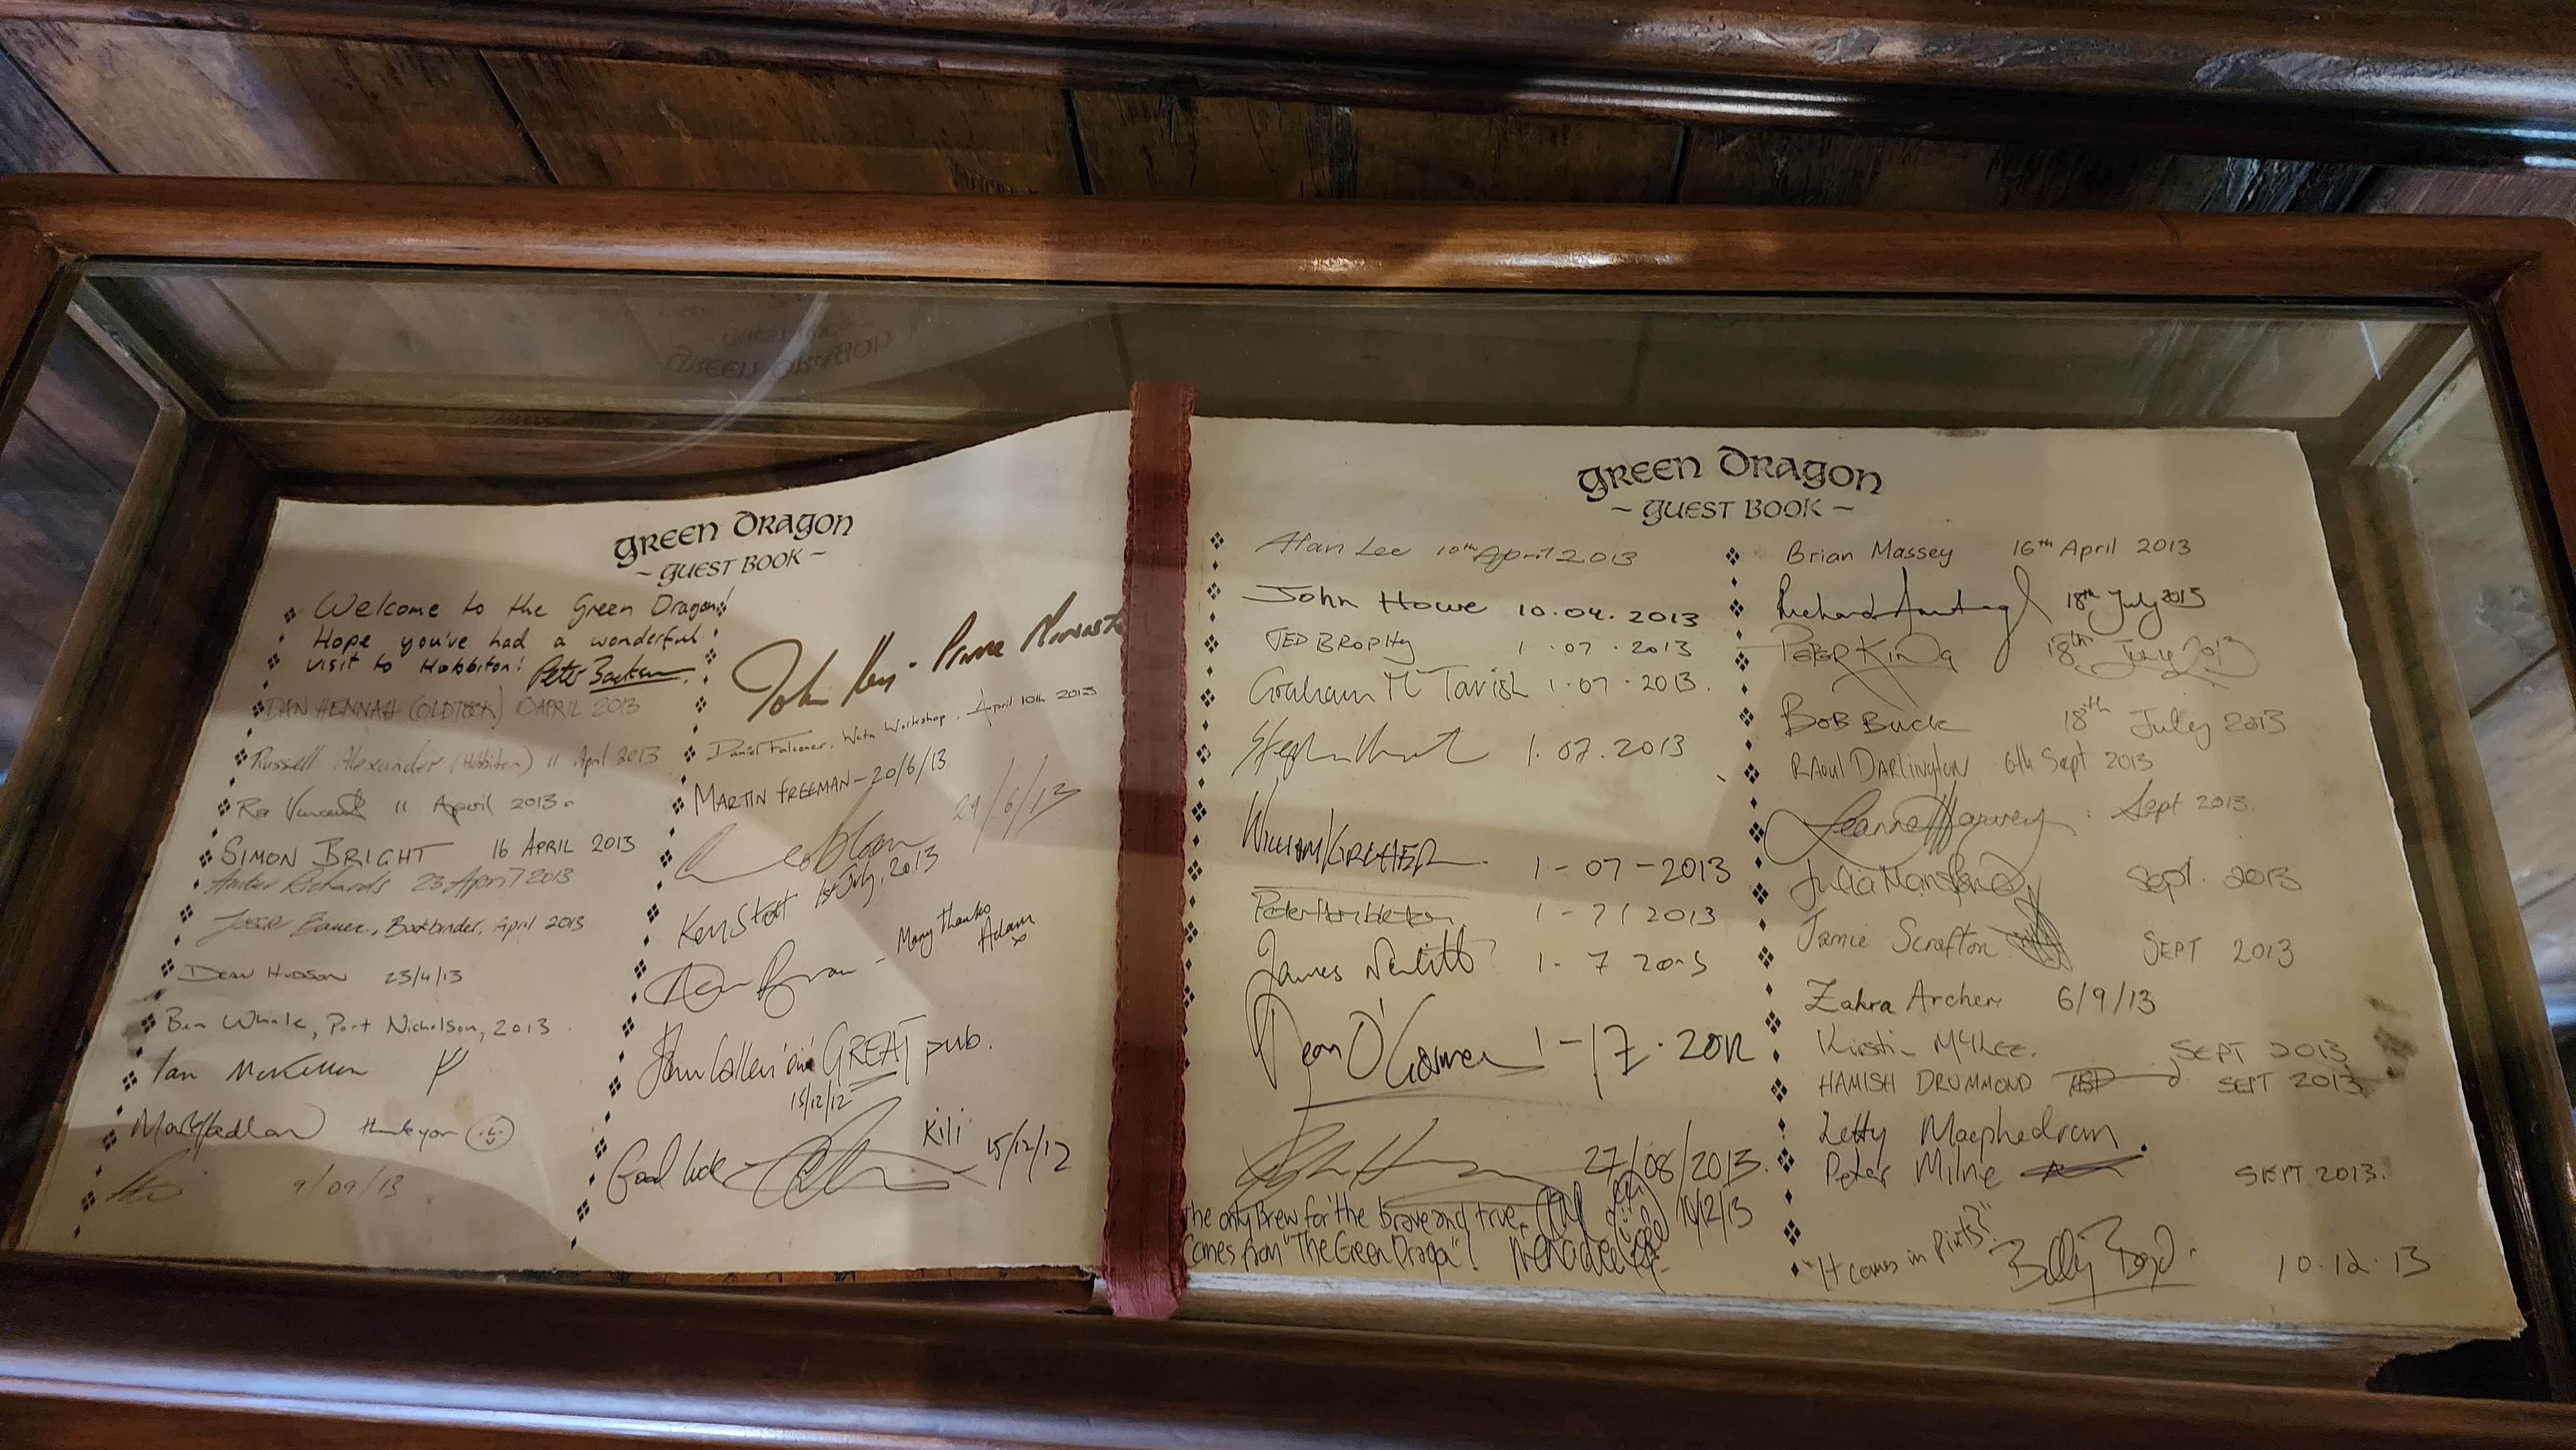 GREEN DRAGON
~ GUEST BOOK ~
Welcome to the Green Dragon!
Hope you've had a wonderful
visit to Hobbiton! Peter
DAN HENNAH (OLDTOOK) 10 APRIL 2013
Russell Alexander (Hobbiton) 11 April 2013
Ra Vincent 11 April 2013
SIMON BRIGHT 16 APRIL 2013
Amber Richards 23 April 2013
Bookbinder, April 2013
Dean Hudson 23/4/13
Ben Whale, Port Nicholson, 2013
Ian McKellen
Mark Hadlow thank you
9/09/13
John Key - Prime Minister
Daniel Falconer, Weta Workshop, April 10th 2013
MARTIN FREEMAN - 20/6/13
29/6/13
Ken Stott 1st July, 2013
Many Thanks
Adam
x
John Callen GREAT pub.
15/12/12
Good luck Kili 15/12/12
GREEN DRAGON
~ GUEST BOOK ~
Alan Lee 10th April 2013
John Howe 10.04.2013
JED BROPHY 1.07.2013
Graham McTavish 1.07.2013.
1.07.2013
WILLIAM KIRCHER 1-07-2013
Peter Hambleton 1-7/2013
James Nesbitt 1-7 2013
Dean O'Gorman
27/08/2013.
The only Brew for the brave and true,
Comes from "The Green Dragon"!
Brian Massey 16th April 2013
Richard Armitage 18th July 2013
PETER KING 18th July 2013
BOB BUCK 18th July 2013
RAOUL DARLINGTON 6th Sept 2013
Leanne Harvey Sept 2013
Julia Sept. 2013
Jamie Scrafton SEPT 2013
Zakra Archer 6/9/13
Kirstin McKee. SEPT 2013
HAMISH DRUMMOND SEPT 2013
Letty Macphedran
Peter Milne SEPT 2013.
"It comes in pints?" Billy Boyd. 10.12.13